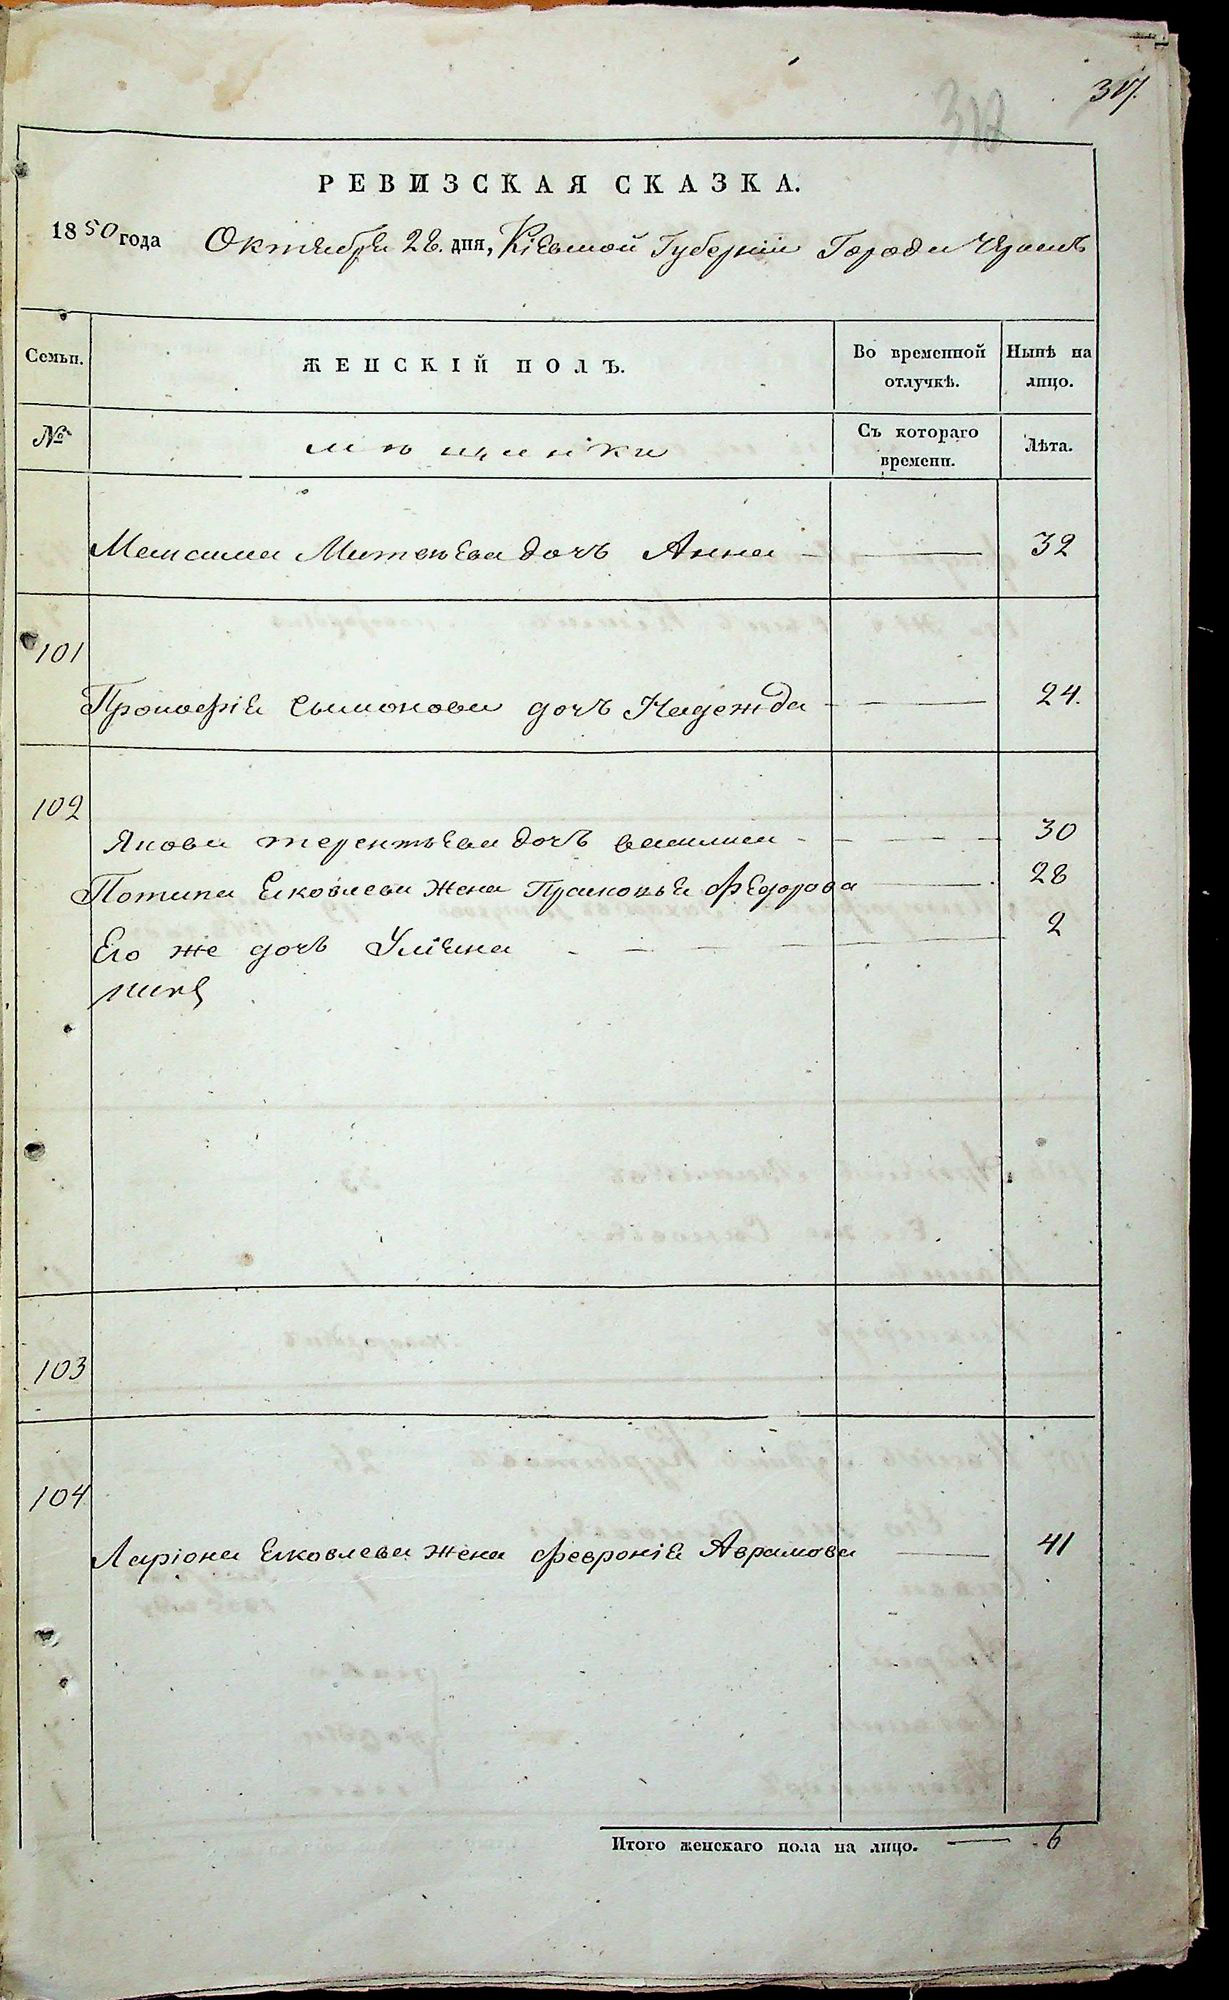 317.
312
РЕВИЗСКАЯ СКАЗКА.
1850 года Октября 28. дня, Кіевской Губерніи Города Черкасъ
Семьи.
ЖЕНСКІЙ ПОЛЪ.
Во временной отлучкѣ.
Нынѣ на лицо.
№
мѣщанки
Съ котораго времени.
Лѣта.
Максима Матвѣева дочь Анна — 32
101
Прокофія Сымонова дочь Надежда — 24.
102
Якова терентьева дочь василиса — 30
Потапа Яковлева жена Прасковья Федорова — 28
Его же дочь Уліяна — 2
103
104
Ларіона Яковлева жена Февронія Аврамова — 41
Итого женскаго пола на лицо. — 6